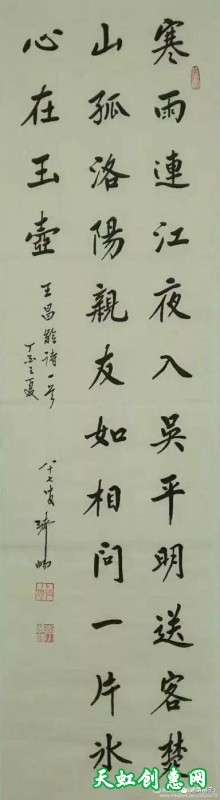 寒雨連江夜入吳平明送客楚
山孤洛陽親友如相問一片冰
心在玉壺
王昌齡詩一首
丁酉之夏
八十七叟
天虹创惠网